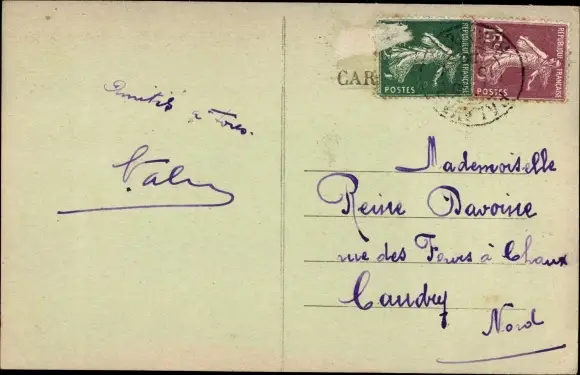 Amitiés à tous.
CAR
REPUBLIQUE FRANCAISE
POSTES
REPUBLIQUE FRANCAISE
POSTES
Mademoiselle
Reine Davoine
rue des Fours à Chaux
Caudry
Nord